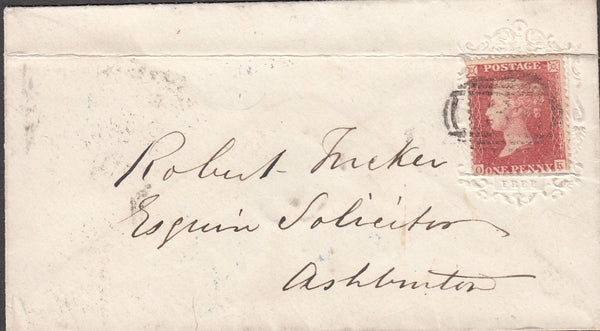 POSTAGE
ONE PENNY
FREE
Robert Tucker
Esquire Solicitor
Ashburton